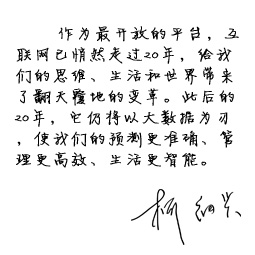 作为最开放的平台，互
联网已悄然走过20年，给我
们的思维、生活和世界带来
了翻天覆地的变革。此后的
20年，它仍将以大数据为刃
，使我们的预测更准确、管
理更高效、生活更智能。